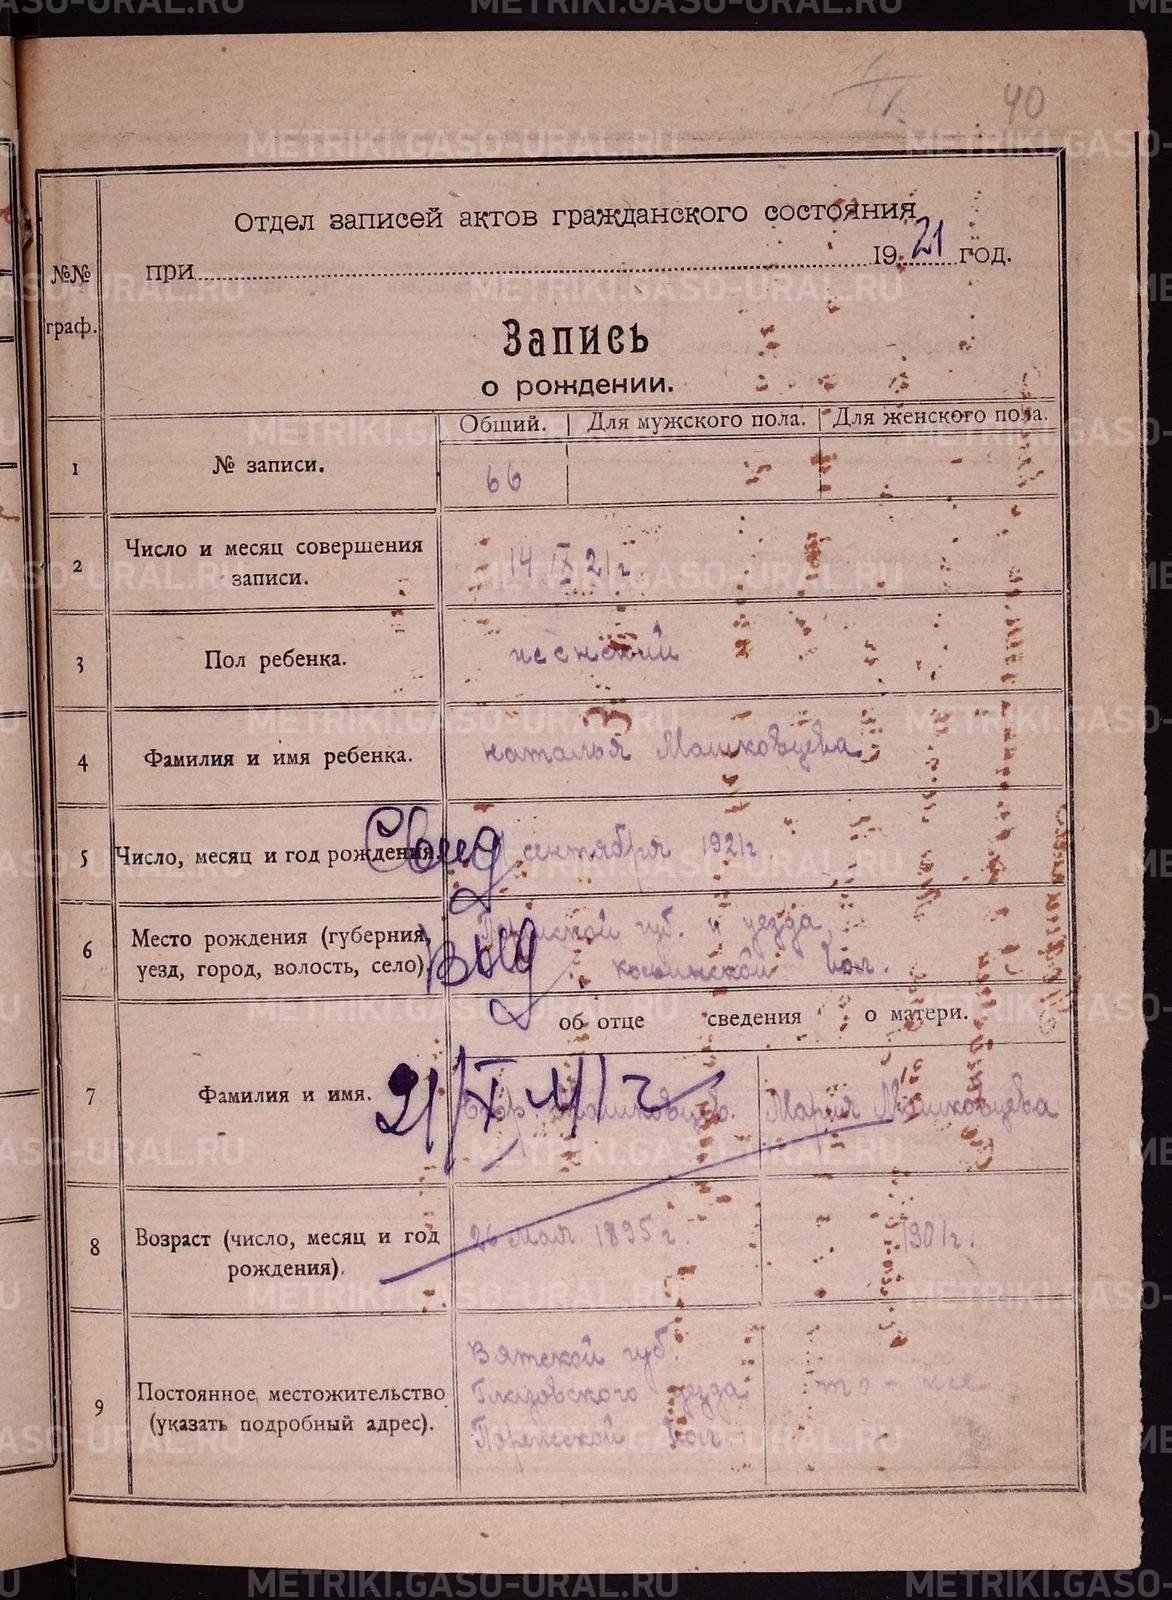 40
Отдел записей актов гражданского состояния
при 1921 год.
№№ граф.
Запись
о рождении.
Общий. Для мужского пола. Для женского пола.
1 № записи. 66
2 Число и месяц совершения записи. 14 IX 21 г.
3 Пол ребенка. женский
4 Фамилия и имя ребенка. Наталья Машковцева
5 Число, месяц и год рождения. сентября 1921 г
6 Место рождения (губерния, уезд, город, волость, село). губ. и уезда
вол.
об отце сведения о матери.
7 Фамилия и имя. Машковцев. Мария Машковцева
8 Возраст (число, месяц и год рождения). 26 мая 1895 г. 1901 г.
9 Постоянное местожительство (указать подробный адрес). Вятской губ.
Глазовского уезда то-же
вол
METRIKI.GASO-URAL.RU